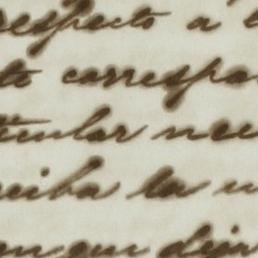 respecto a
te correspo
ticular nec
reciba la
en que dejar